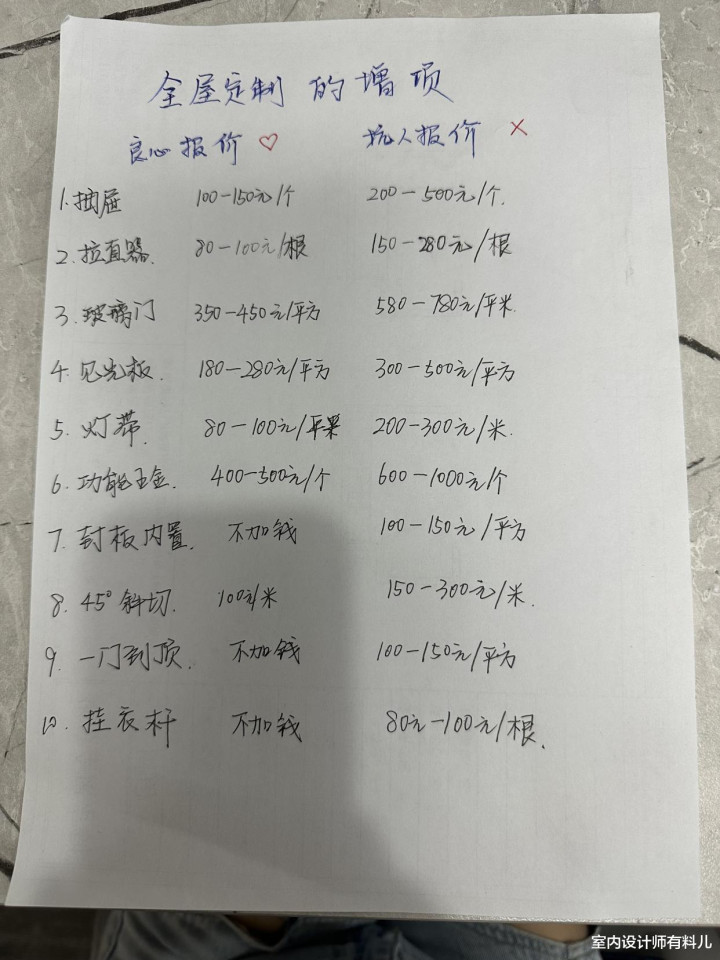 全屋定制的增项
良心报价♡ 坑人报价 ×
1.抽屉 100-150元/个 200-500元/个.
2.拉直器. 80-100元/根 150-280元/根
3.玻璃门 350-450元/平方 580-780元/平米.
4.见光板. 180-280元/平方 300-500元/平方
5.灯带. 80-100元/ 200-300元/米.
6.功能五金. 400-500元/个 600-1000元/个
7.封板内置. 不加钱 100-150元/平方
8.45°斜切. 100元/米 150-300元/米.
9.一门到顶. 不加钱 100-150元/平方
10.挂衣杆 不加钱 80元-100元/根.
室内设计师有料儿